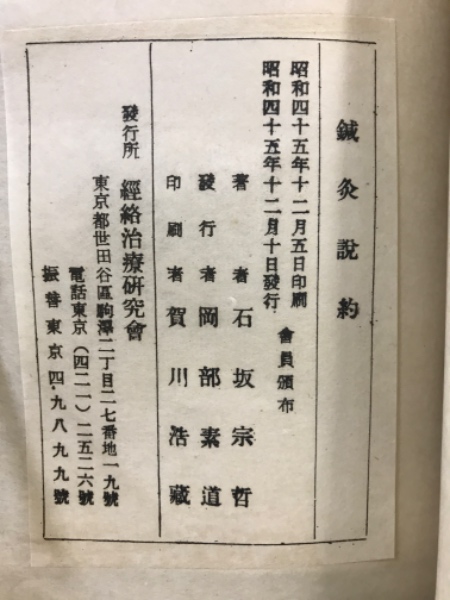 鍼灸說約
昭和四十五年十二月五日印刷
昭和四十五年十二月十日發行
會員頒布
著者 石坂宗哲
發行者 岡部素道
印刷者 賀川浩藏
發行所 經絡治療研究會
東京都世田谷區駒澤二丁目二七番地一九號
電話東京(四二一)二五二六號
振替東京四・九八九九號